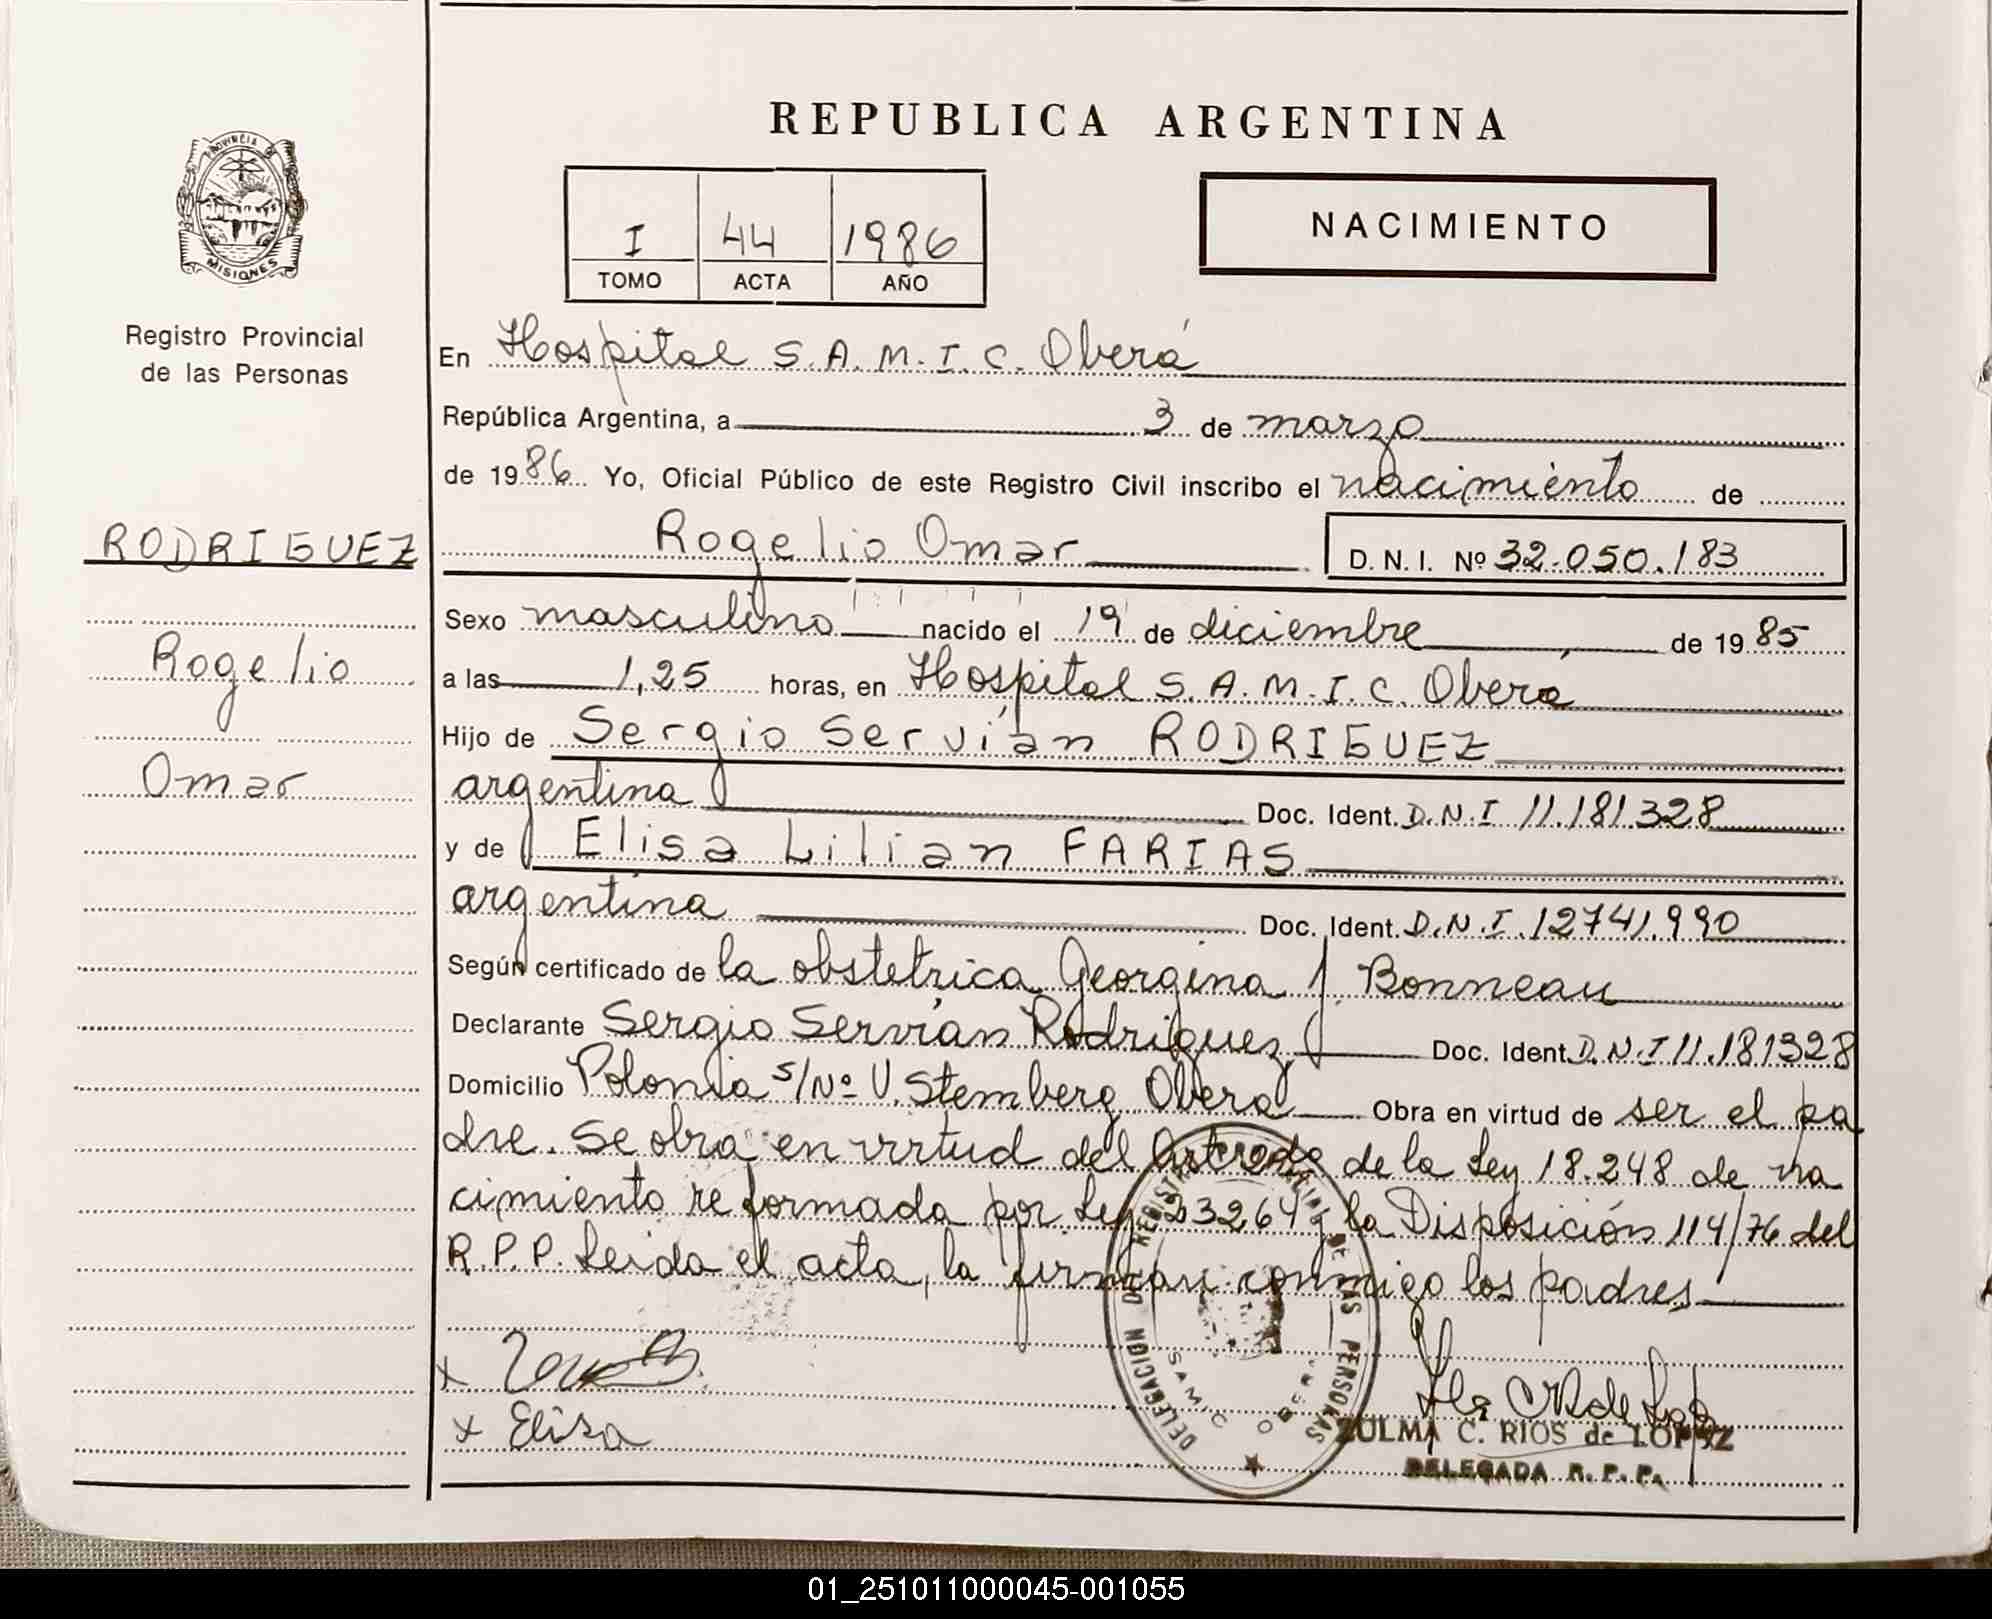 REPUBLICA ARGENTINA
PROVINCIA DE
MISIONES
Registro Provincial
de las Personas
I 44 1986
TOMO ACTA AÑO
NACIMIENTO
En Hospital S.A.M.I.C. Oberá
República Argentina, a 3 de marzo
de 1986 Yo, Oficial Público de este Registro Civil inscribo el nacimiento de
RODRIGUEZ
Rogelio
Omar
Rogelio Omar D. N. I. Nº 32.050.183
Sexo masculino nacido el 19 de diciembre de 1985
a las 1,25 horas, en Hospital S.A.M.I.C. Oberá
Hijo de Sergio Servián RODRIGUEZ
argentina Doc. Ident. D.N.I 11.181.328
y de Elisa Lilián FARIAS
argentina Doc. Ident. D.N.I. 12741.990
Según certificado de la obstetrica Georgina J. Bonneau
Declarante Sergio Servián Rodriguez Doc. Ident. D.N.I 11.181328
Domicilio Polonia s/Nº V. Stemberg Oberá Obra en virtud de ser el pa
dre. Se obra en virtud del de la Ley 18.248 de na
cimiento reformada por Ley 23264 y la Disposición 114/76 del
R.P.P. Leida el acta, la firman conmigo los padres
x
x Elisa
DELEGACION DE REGISTRO PROVINCIAL DE LAS PERSONAS
SAMIC OBERA
ZULMA C. RIOS de LOPEZ
DELEGADA R. P. P.
01_251011000045-001055